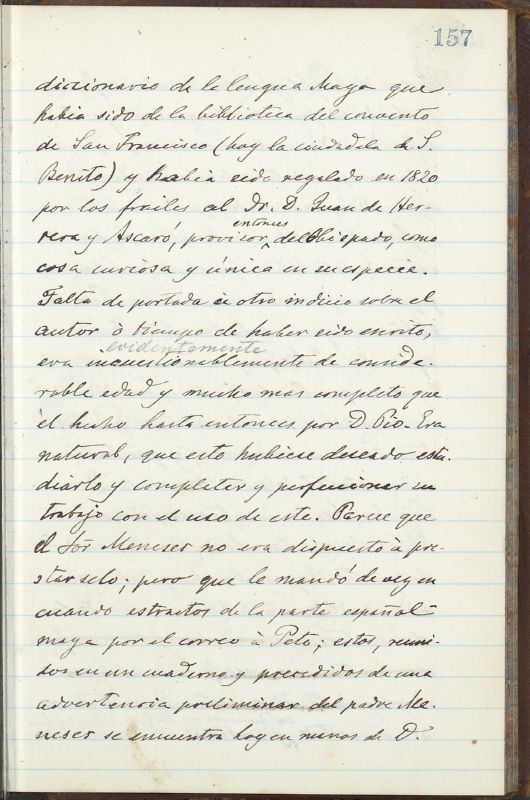 157
diccionario de la lengua Maya que
habia sido de la biblioteca del convento
de San Francisco (hoy la ciudadela de S.
Benito) y habia sido regalado en 1820
por los frailes al Dr. D. Juan de Her-
rera y Ascaró, provisor, entonces del Obispado, como
cosa curiosa y única en su especie.
Falta de portada ú otro indicio sobre el
autor ò tiempo de haber sido escrito,
evidentemente
era incuestionablemente de conside-
rable edad y mucho mas completo que
el hecho hasta entonces por D. Pio. Era
natural, que este hubiese deseado estu-
diarlo y completar y perfeccionar su
trabajo con el uso de este. Parece que
el Sōr Meneses no era dispuesto à pre-
starselo; pero que le mandó de vez en
cuando estractos de la parte español-
maya por el correo à Peto; estos, reuni-
dos en un cuaderno y precedidos de una
advertencia preliminar del padre Me-
neses se encuentra hoy en manos de D.